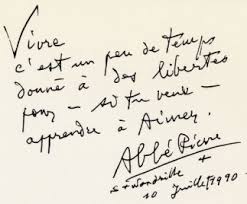 Vivre
c'est un peu de temps
donné à des libertés
pour - si tu veux -
apprendre à Aimer.
Abbé Pierre
St Wandrille +
10 Juillet 1990